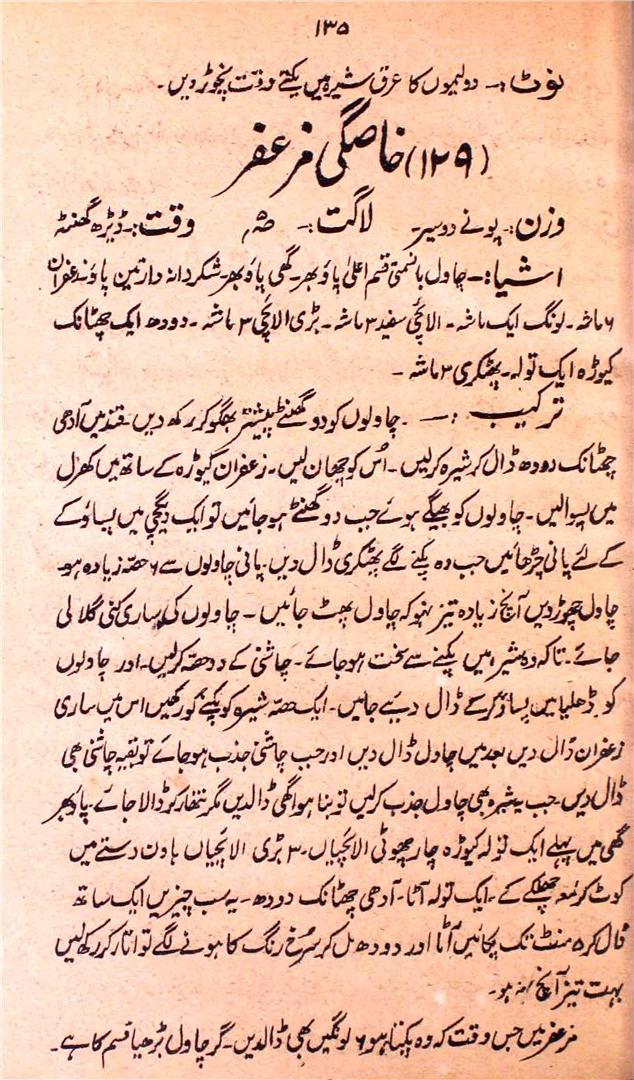 ۱۳۵
نوٹ:- دو لیموں کا عرق شیرہ میں پکتے وقت نچوڑ دیں۔
(۱۲۹) خاصگی مزعفر
وزن:- پونے دو سیر۔ لاگت:- وقت:- ڈیڑھ گھنٹہ
اشیا:- چاول باسمتی قسم اعلیٰ پاؤ بھر۔ گھی پاؤ بھر۔ شکر دانہ دار تین پاؤ۔ زعفران
۶ ماشہ۔ لونگ ایک ماشہ۔ الائچی سفید ۳ ماشہ۔ بڑی الائچی ۳ ماشہ۔ دودھ ایک چھٹانک
کیوڑہ ایک تولہ۔ پھٹکری ۳ ماشہ۔
ترکیب:- چاولوں کو دو گھنٹے پیشتر بھگو کر رکھ دیں۔ قند میں آدھی
چھٹانک دودھ ڈال کر شیرہ کر لیں۔ اُس کو چھان لیں۔ زعفران کیوڑہ کے ساتھ میں کھرل
میں پسوالیں۔ چاولوں کو بھیگے ہوئے جب دو گھنٹے ہو جائیں تو ایک دیگچی میں پساؤ کے
کے لئے پانی چڑھائیں جب وہ پکنے لگے پھٹکری ڈال دیں۔ پانی چاولوں سے ۶ حصہ زیادہ ہو۔
چاول چھوڑ دیں آنچ زیادہ تیز نہو کہ چاول پھٹ جائیں۔ چاولوں کی ساری کنی گلا لی
جائے۔ تاکہ وہ شیرہ میں پکنے سے سخت ہو جائے۔ چاشنی کے دو حصہ کر لیں۔ اور چاولوں
کو ڈھلیا میں پساؤ کر کے ڈال دیئے جائیں۔ ایک حصہ شیرہ کو پکنے کو رکھیں اس میں ساری
زعفران ڈال دیں بعد میں چاول ڈال دیں اور جب چاشنی جذب ہو جائے تو بقیہ چاشنی بھی
ڈال دیں۔ جب یہ شیرہ بھی چاول جذب کر لیں تو بنا ہوا گھی ڈالدیں مگر نتھار کر ڈالا جائے۔ پاؤ بھر
گھی میں پہلے ایک تولہ کیوڑہ چار چھوٹی الائچیاں۔ ۳ بڑی الائچیاں ہاون دستے میں
کوٹ کر معہ چھلکے کے۔ ایک تولہ آٹا۔ آدھی چھٹانک دودھ۔ یہ سب چیزیں ایک ساتھ
ڈال کر ۵ منٹ تک پکائیں آٹا اور دودھ مل کر سرخ رنگ کا ہونے لگے تو اتار کر رکھ لیں
بہت تیز آنچ نہ ہو۔
مزعفر میں جس وقت کہ وہ پکتا ہو ۶ لونگیں بھی ڈالدیں۔ گر چاول بڑھیا قسم کا ہے۔